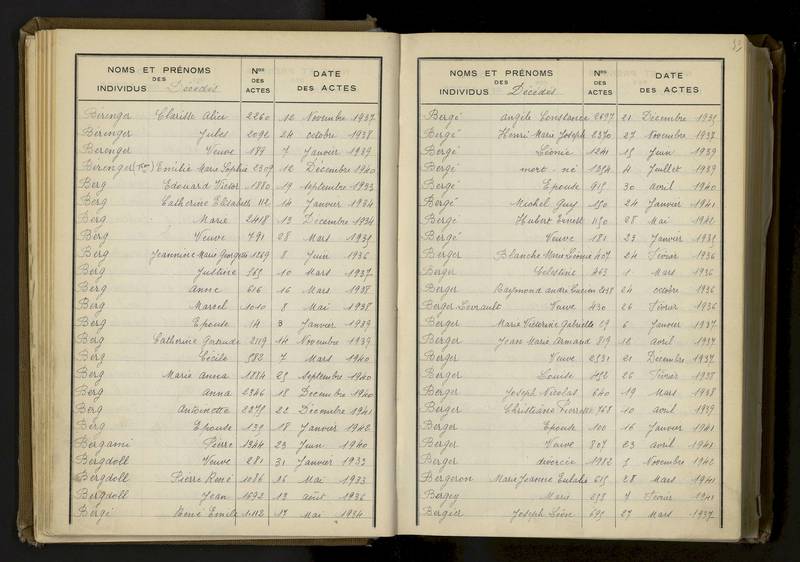 NOMS ET PRÉNOMS DES INDIVIDUS Décédés Nos DES ACTES DATE DES ACTES
Beringer Clarisse Alice 2260 12 Novembre 1937
Beringer Jules 2092 24 octobre 1938
Berenger Veuve 189 7 Janvier 1939
Bérenger Emilie Marie Sophie 2309 12 Décembre 1940
Berg Edouard Victor 1880 19 septembre 1933
Berg Catherine Elisabeth 112 14 Janvier 1934
Berg Marie 2418 13 Décembre 1934
Berg Veuve 791 28 Mars 1935
Berg Jeannine Marie Georgette 1269 8 Juin 1936
Berg Justine 565 10 Mars 1937
Berg Anne 616 16 Mars 1938
Berg Marcel 1010 8 Mai 1938
Berg Epouse 14 3 Janvier 1939
Berg Catherine Gertrude 2119 14 Novembre 1939
Berg Cécile 583 7 Mars 1940
Berg Marie Anna 1834 25 septembre 1940
Berg Anna 2346 18 Décembre 1940
Berg Antoinette 2275 22 Décembre 1941
Berg Epouse 139 18 Janvier 1942
Bergami Pierre 1344 23 Juin 1940
Bergdoll Veuve 281 31 Janvier 1933
Bergdoll Pierre René 1036 16 Mai 1933
Bergdoll Jean 1692 13 août 1936
Bergé René Emile 1112 17 Mai 1934
NOMS ET PRÉNOMS DES INDIVIDUS Décédés Nos DES ACTES DATE DES ACTES
Bergé Angèle Constance 2697 21 Décembre 1935
Bergé Henri Marie Joseph 2370 27 Novembre 1937
Bergé Léonie 1241 15 Juin 1939
Bergé mort-né 1354 4 Juillet 1939
Bergé Epouse 915 30 avril 1940
Bergé Michel Guy 150 24 Janvier 1941
Bergé Hubert Ernest 1150 28 Mai 1942
Bergé Veuve 181 23 Janvier 1935
Berger Blanche Marie Léonie 407 24 Février 1936
Berger Celestine 463 1 Mars 1936
Berger Raymond andré Lucien 2138 24 octobre 1936
Berger Levrault Veuve 430 26 Février 1936
Berger Marie Victorine Gabrielle 59 6 Janvier 1937
Berger Jean Marie Armand 819 12 avril 1937
Berger Veuve 2531 21 Décembre 1937
Berger Louise 452 26 Février 1938
Berger Joseph Nicolas 640 19 Mars 1938
Berger Christiane Pierrette 768 10 avril 1939
Berger Epouse 100 16 Janvier 1941
Berger Veuve 807 23 avril 1941
Berger divorcée 1982 5 Novembre 1942
Bergeron Marie Jeanne Eulalie 615 28 Mars 1941
Bergey Marie 258 7 Février 1941
Bergier Joseph Léon 695 27 Mars 1937